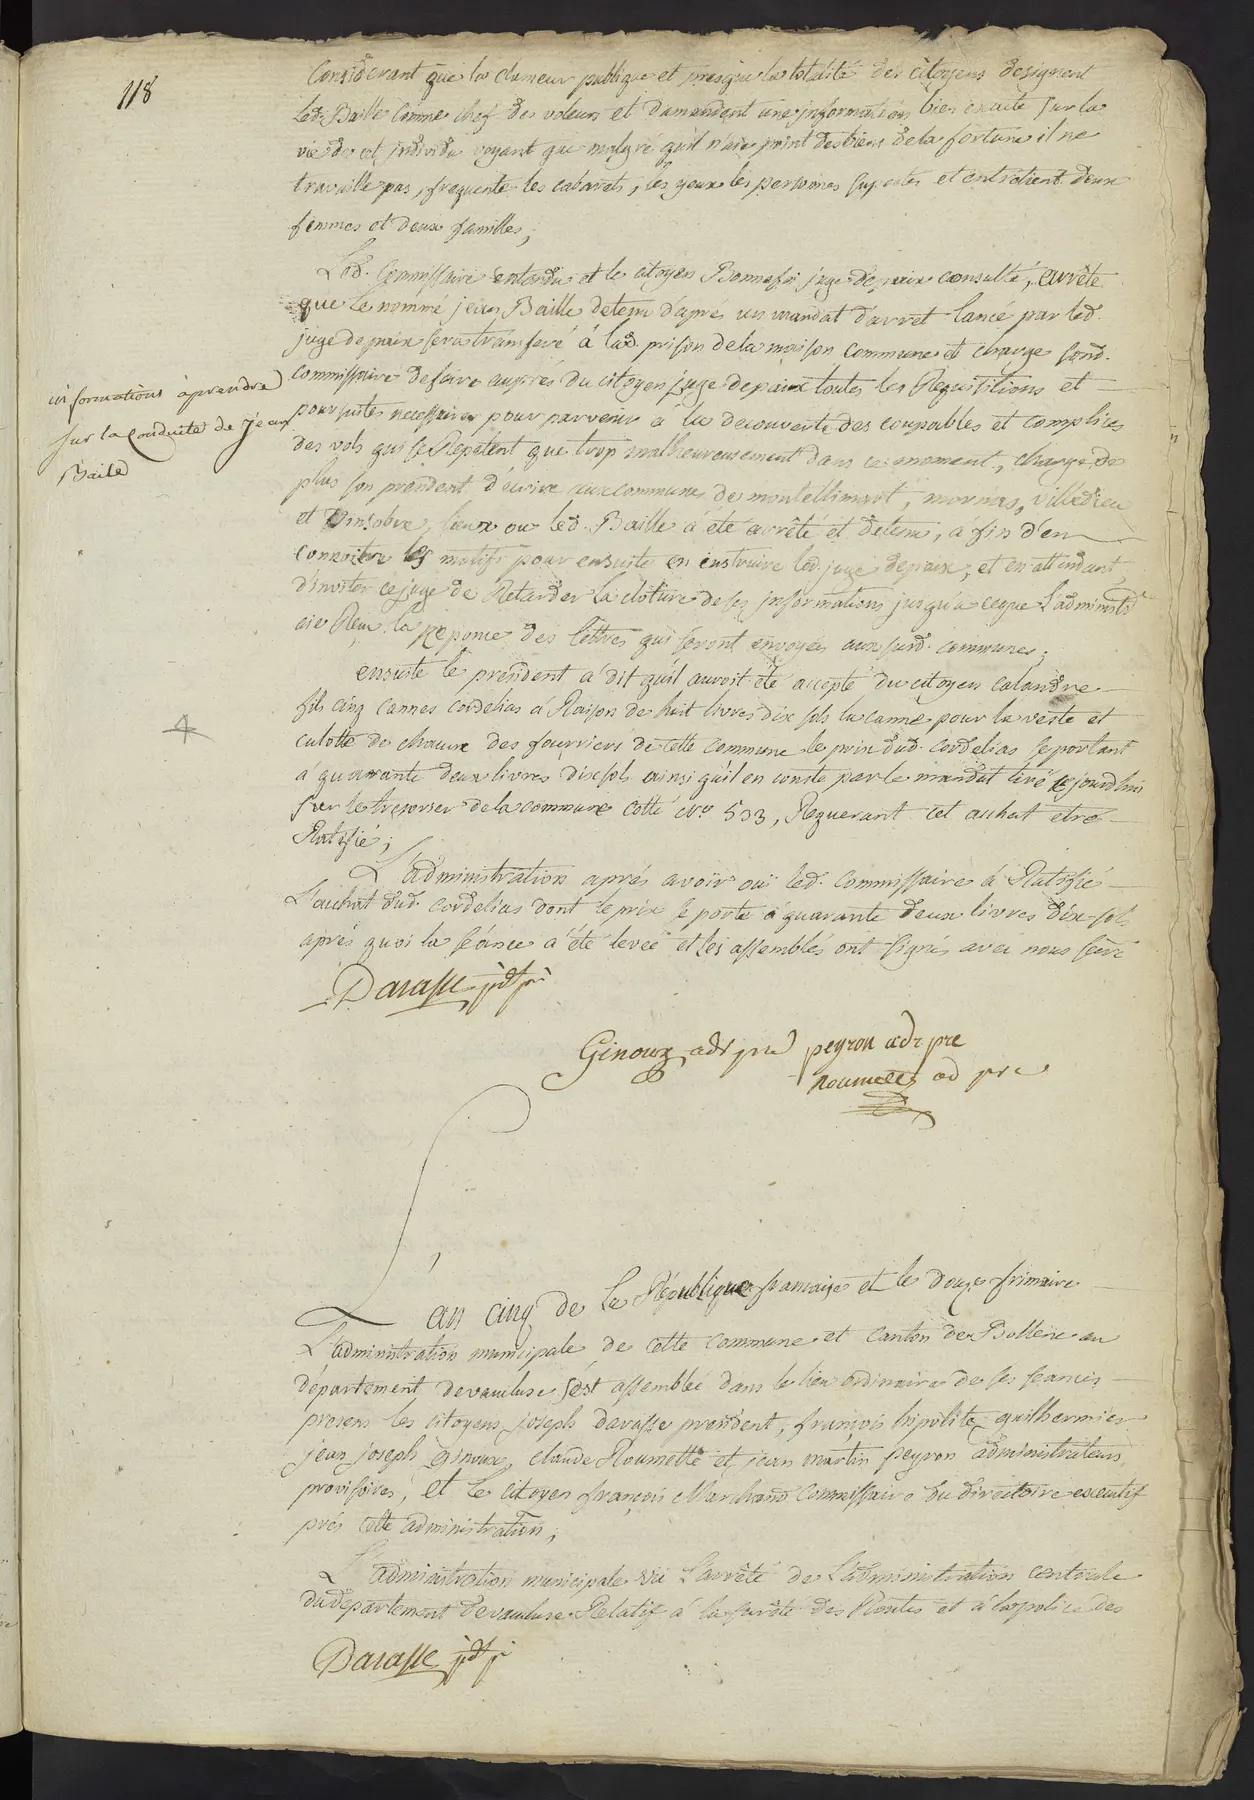 118
Considerant que la clameur publique et presque la totalité des citoyens designent
led. Baille comme chef des voleurs et demandent une information bien exacte sur la
vie de cet individu voyant que malgré qu'il n'aie point des biens de la fortune il ne
travaille pas, frequente les cabarets, les jeux les persones suspectes et entretient deux
femmes et deux familles;
Led. Commissaire entendu et le citoyen Bonnefoi juge de paix consulté, arrête
que le nommé jean Baille detenu d'apres un mandat d'arret lancé par led.
juge de paix sera transferé à lad. prison de la maison commune et charge sond.
commissaire de faire auprès du citoyen juge de paix toutes les Requisitions et
poursuites necessaires pour parvenir à la decouverte des coupables et complices
des vols qui se Repetent que trop malheureusement dans ce moment, charge de
plus son président d'écrire aux communes de montellimart, mornas, villedieu
et Vinsobre, lieux ou led. Baille à été arrêté et detenu, a fin d'en
connoitre les motifs pour ensuite en instruire led. juge de paix, et en attendant
d'inviter ce juge de Retarder la cloture de ses informations jusqu'a ceque L'administ.on
aie Reçu la Reponce des lettres qui seront envoyées aux susd. communes;
informations à prendre
sur la conduite de Jean
Baile
ensuite le président a dit qu'il auroit été accepté du citoyen calandre
fils cinq cannes cordelias à Raison de huit livres dix sols la canne pour la veste et
culotte de chacun des fourriers de cette commune le prix dud. cordelias se portant
á quarante deux livres dix sols ainsi qu'il en conste par le mandat tiré cejourd'hui
sur le tresorier de la commune cotté N.o 533, Requerant cet achat etre
Ratifié;
L'administration après avoir oui led. commissaire à Ratifié
L'achat dud. cordelias dont le prix se porte à quarante deux livres dix sols
après quoi la séance a été levée et les assemblés ont signés avec nous secre
Darasse pdt pr
Ginoux adr pre peyron adr pre
Roumette ad pre
L'an cinq de la République francaise et le douze frimaire
L'administration municipale de cette commune et canton de Bollene au
département de vaucluse s'est assemblée dans le lieu ordinaire de ses séances
presens les citoyens joseph darasse président, françois hipolite guilhermier
jean joseph Ginoux, claude Roumette et jean martin peyron administrateurs
provisoires, et le citoyen françois Marchand commissaire du directoire executif
près cette administration;
L'administration municipale vu L'arrêté de L'administration centrale
du département de vaucluse Relatif à la sureté des Routes et à la police des
Darasse pdt pr